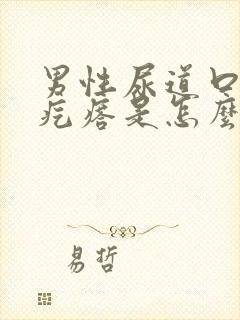 男性尿道口
疙瘩是怎麼
易哲